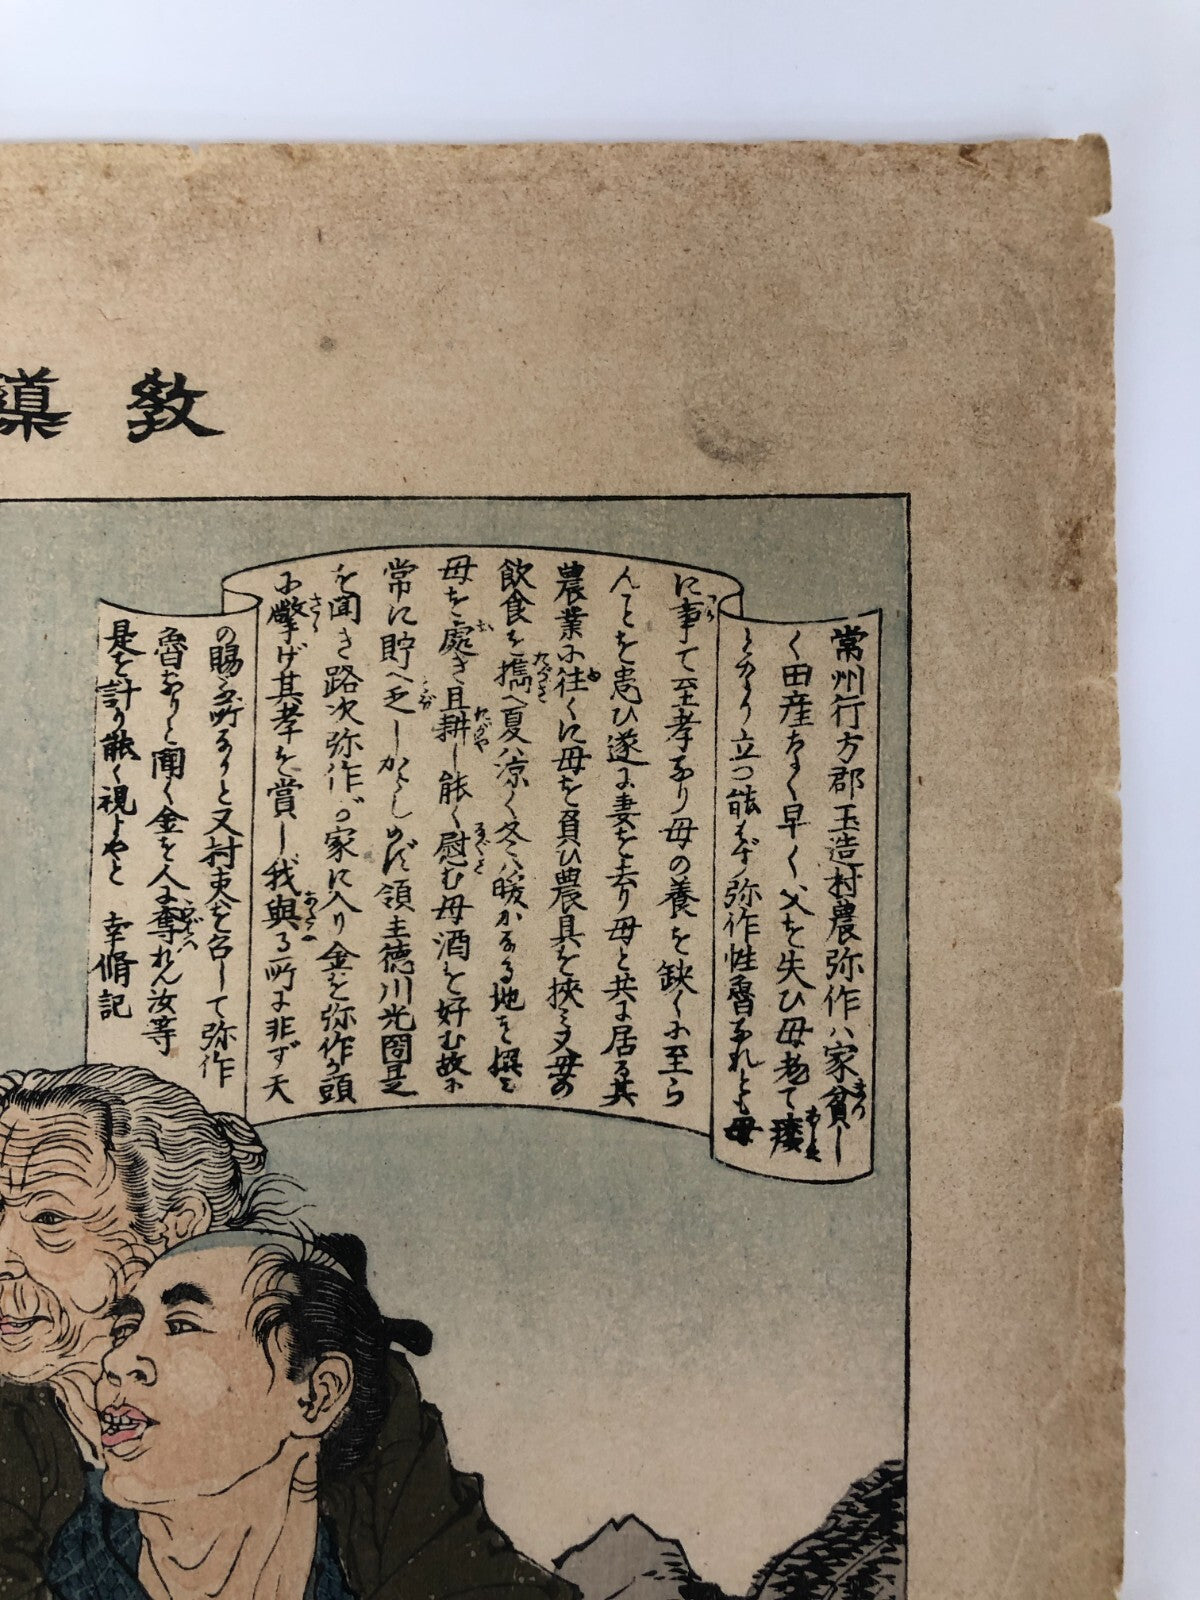 教導
常州行方郡玉造村農弥作ハ家貧し
く田産なく早く父を失ひ母老て痿
とかり立つ能はず弥作性魯なれども母
に事て至孝なり母の養を缺くに至ら
んことを患ひ遂に妻を去り母と共に居る其
農業に往くに母を負ひ農具を挾ミ又母の
飲食を攜へ夏ハ涼く冬ハ暖かなる地を撰ミ
母を處き且耕し能く慰む母酒を好む故に
常に貯へ乏しからしめず領主徳川光圀是
を聞き路次弥作が家に入り金を弥作が頭
に擎げ其孝を賞し我與る所に非ず天
の賜ふ所なりと又村吏を召して弥作
魯なりと聞く金を人に奪れん汝等
是を計り能く視よやと 幸脩記